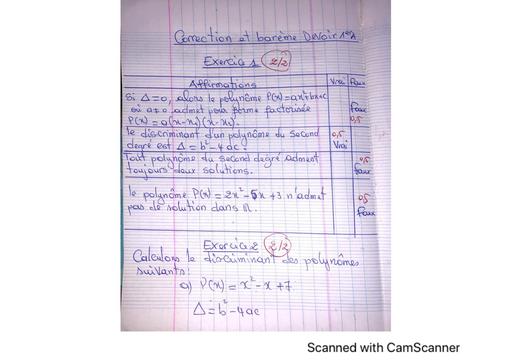 Correction et barème Devoir 1erA
Exercice 1 2/2
Affirmations Vrai Faux
Si Δ=0, alors le polynôme P(x)=ax²+bx+c
où a≠0 admet pour forme factorisée Faux
P(x) = a(x-x₁)(x-x₂). 0,5
le discriminant d'un polynôme du second 0,5
degré est Δ = b²-4ac. Vrai
Tout polynôme du second degré admet 0,5
toujours deux solutions. Faux
le polynôme P(x) = 2x²-5x+3 n'admet 0,5
pas de solution dans ℝ. Faux
Exercice 2 2/2
Calculons le discriminant des polynômes
suivants:
a) P(x) = x²-x+7
Δ=b²-4ac
Scanned with CamScanner